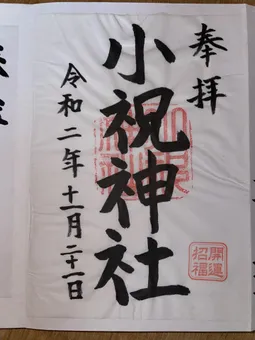 奉拝
小祝神社
令和二年十一月二十一日
開運
招福